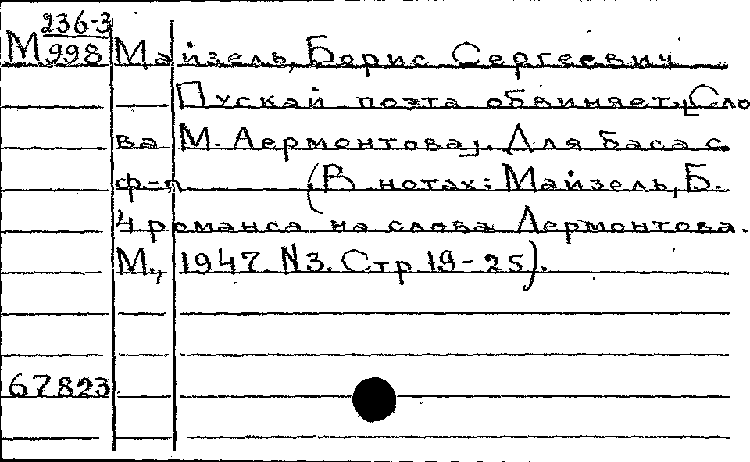 236-3
М998 Майзель, Борис Сергеевич
Пускай поэта обвиняет. [Сло
ва М. Лермонтова]. Для баса с
ф-п (В нотах: Майзель, Б.
4 романса на слова Лермонтова.
М., 1947. N3. Стр. 19-25).
67823